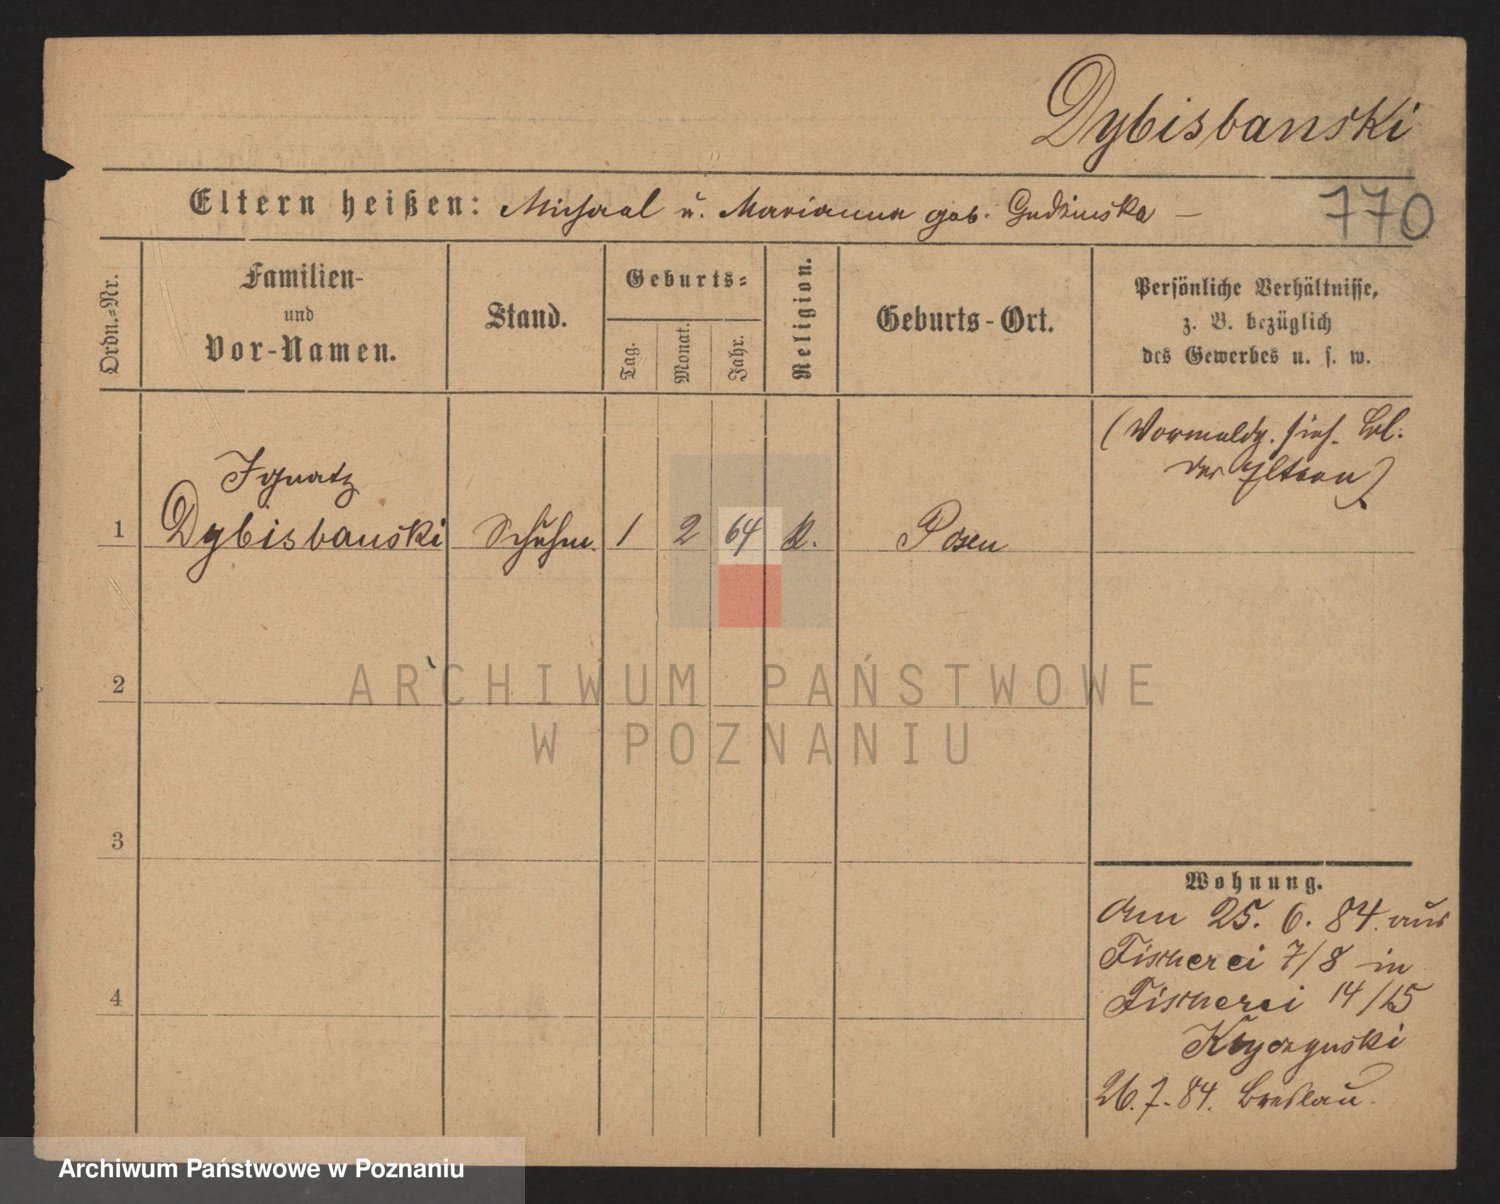 Dybisbanski
Eltern heißen: Michael u. Marianna geb. Gudzinska —
770
Ordn.=Nr.
Familien-
und
Vor-Namen.
Stand.
Geburts=
Tag.
Monat.
Jahr.
Religion.
Geburts-Ort.
Persönliche Verhältnisse,
z. B. bezüglich
des Gewerbes u. s. w.
(Vormeldg. sieh.
der Eltern)
Ignatz
1 Dybisbanski Schuhm. 1 2 64 k. Posen
2
ARCHIWUM PAŃSTWOWE
W POZNANIU
3
Wohnung.
Am 25. 6. 84. aus
Fischerei 7/8 in
4
Fischerei 14/15
26. 7. 84. Breslau.
Archiwum Państwowe w Poznaniu